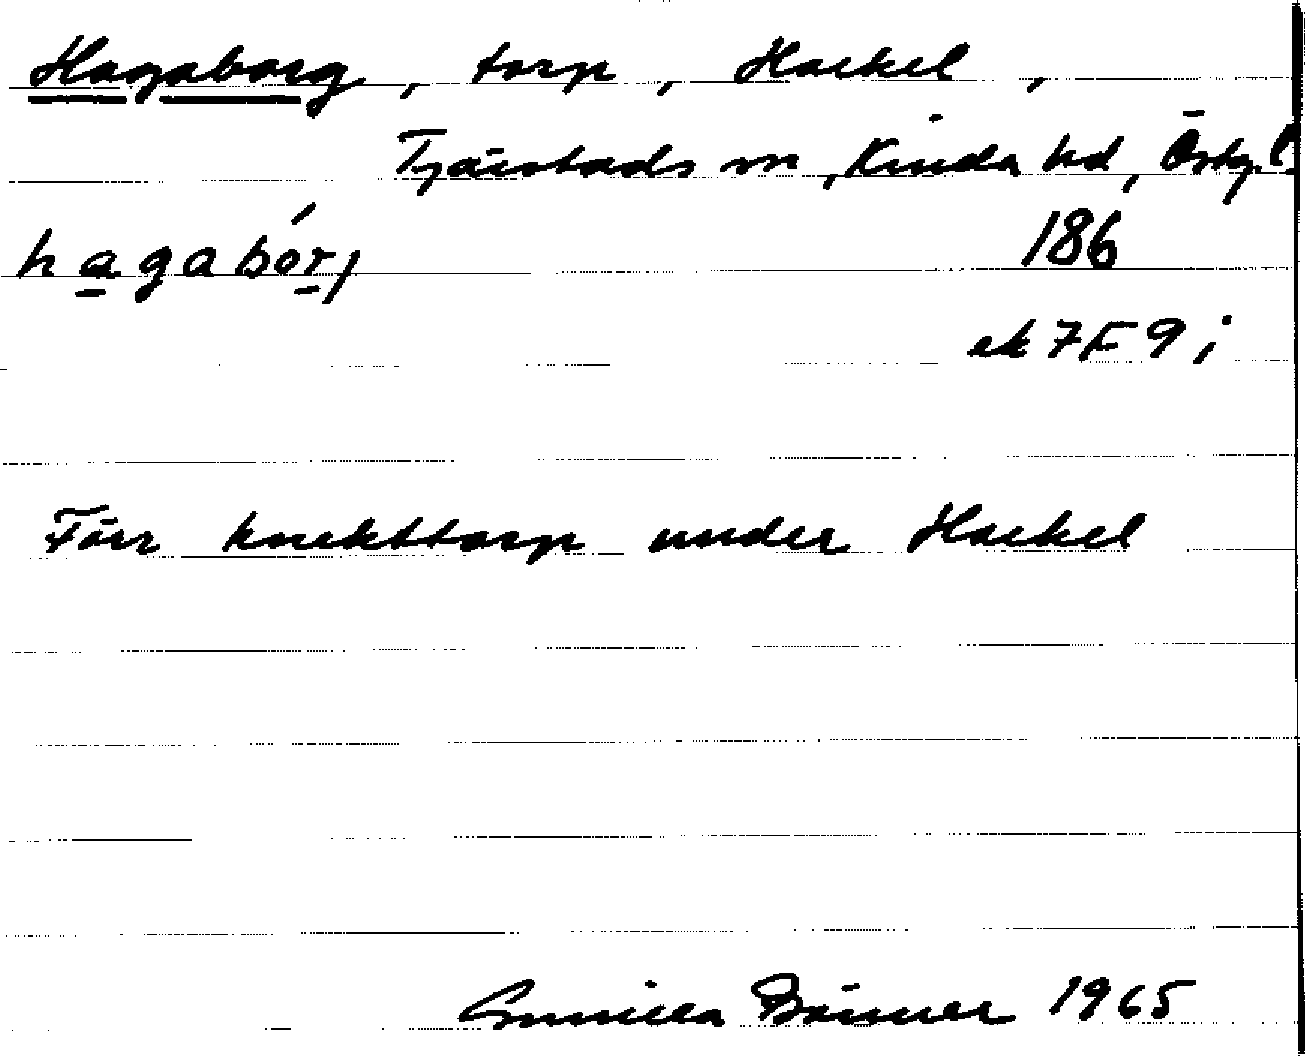 Hagaborg, torp, Haekel,
Tjärstads sn, Kinda hd, Östg. l.
hagabórj
186
ek 7F 9i
Förr knekttorp under Haekel
Gunilla 1965